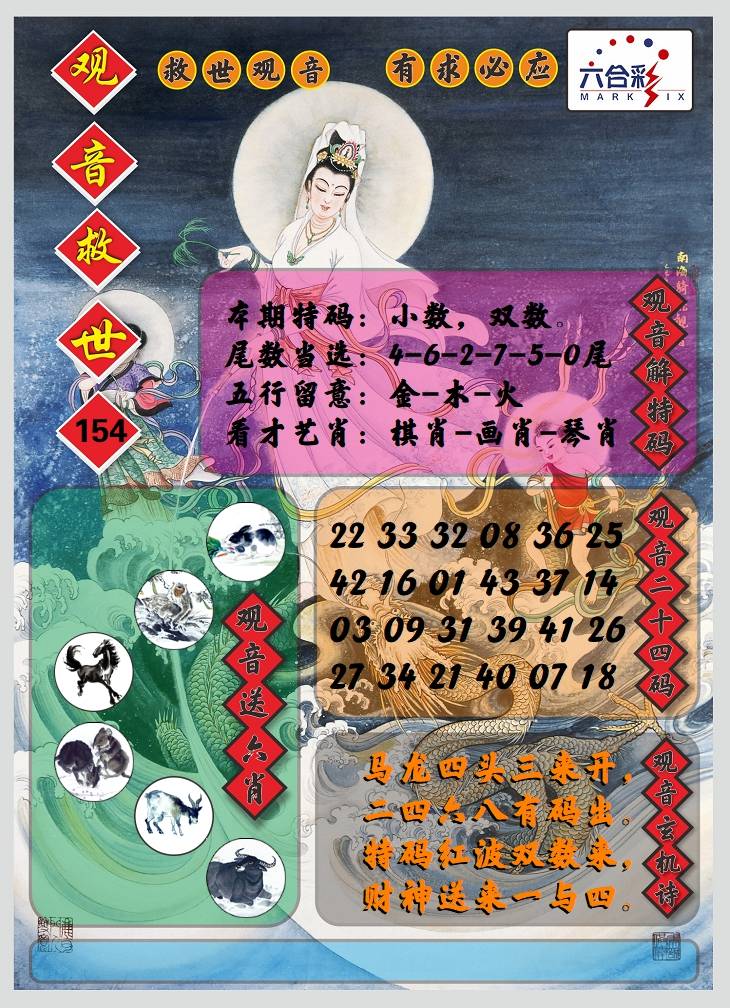 观音救世
154
救世观音 有求必应
六合彩
MARK SIX
南海
观音解特码
本期特码：小数，双数。
尾数当选：4-6-2-7-5-0尾
五行留意：金-木-火
看才艺肖：棋肖-画肖-琴肖
观音送六肖
观音二十四码
22 33 32 08 36 25
42 16 01 43 37 14
03 09 31 39 41 26
27 34 21 40 07 18
观音玄机诗
马龙四头三来开，
二四六八有码出。
特码红波双数来，
财神送来一与四。